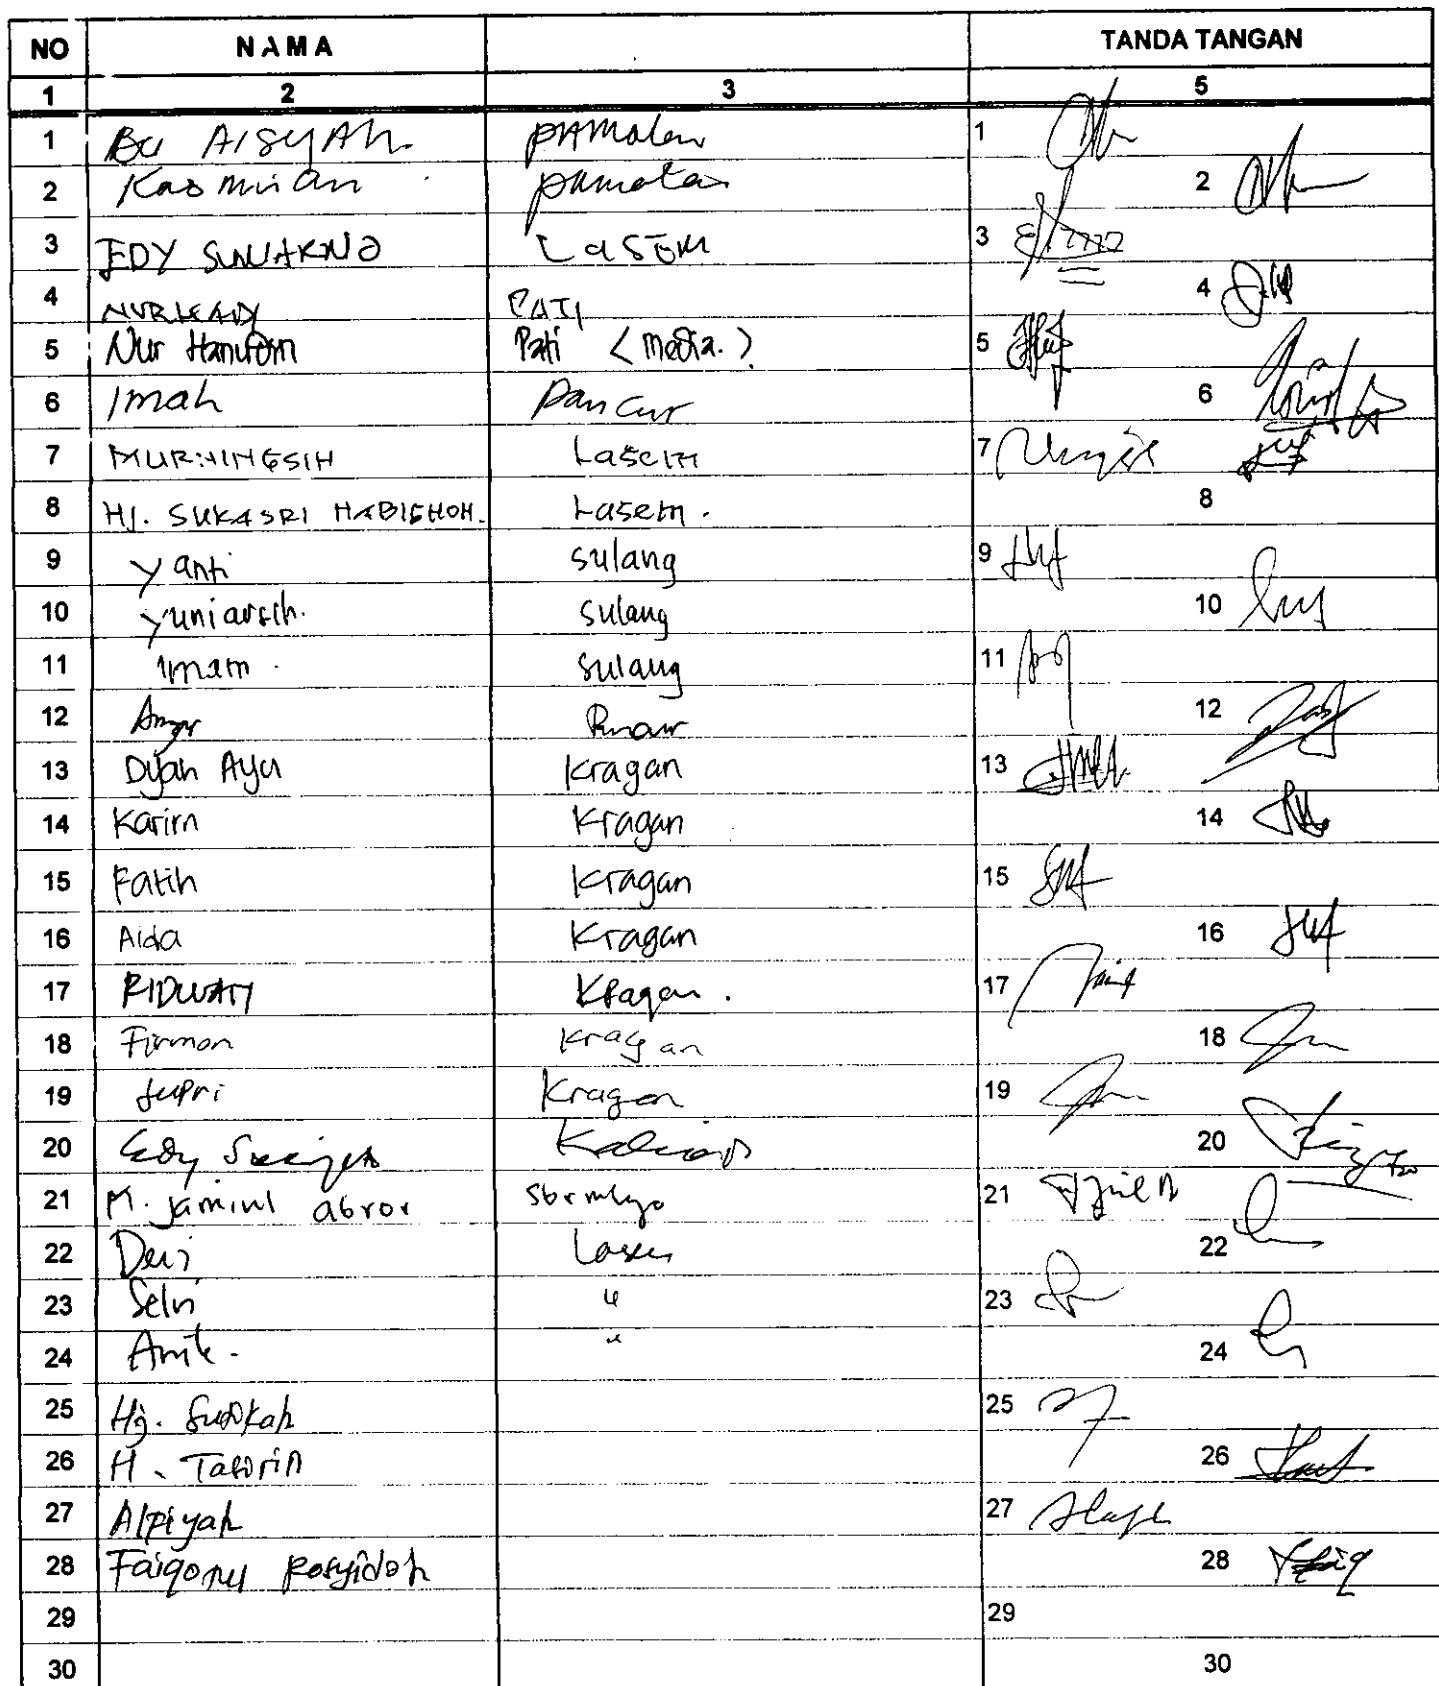 NO NAMA TANDA TANGAN
1 2 3 5
1 Bu AISYAh. PAMotan 1
2 Kasmiran pamotan 2
3 EDY SUNARNO LaSEM 3
4 PATI 4
5 Nur Hanifam Pati (media.) 5
6 Imah Pancur 6
7 MURNINGSIH Lasem 7
8 Hj. SUKASRI HABIBHOH. Lasem. 8
9 yanti sulang 9
10 yuniarsih. sulang 10
11 Imam. sulang 11
12 12
13 Dyah Ayu Kragan 13
14 Karim Kragan 14
15 Fatih Kragan 15
16 Aida Kragan 16
17 RIDWAN Kragan. 17
18 Firman kragan 18
19 Jupri Kragan 19
20 Edy 20
21 M. Jamiul abror 21
22 Devi Lasem 22
23 Selvi " 23
24 Anik. " 24
25 Hj. 25
26 H. 26
27 Alpiyah 27
28 Faiqotul Rosyidah 28
29 29
30 30